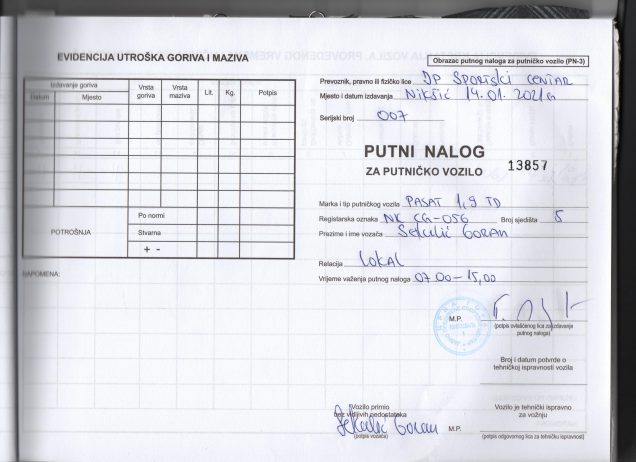 EVIDENCIJA UTROŠKA GORIVA I MAZIVA
Izdavanje goriva
Datum Mjesto Vrsta goriva Vrsta maziva Lit. Kg. Potpis
POTROŠNJA
Po normi
Stvarna
+ -
NAPOMENA:
Obrazac putnog naloga za putničko vozilo (PN-3)
Prevoznik, pravno ili fizičko lice JP SPORTSKI CENTAR
Mjesto i datum izdavanja NIKŠIĆ 14.01.2021g
Serijski broj 007
PUTNI NALOG
ZA PUTNIČKO VOZILO 13857
Marka i tip putničkog vozila PASAT 1,9 TD
Registarska oznaka NK CG-056 Broj sjedišta 5
Prezime i ime vozača Sekulić GORAN
Relacija LOKAL
Vrijeme važenja putnog naloga 07.00-15,00
M.P.
(potpis ovlašćenog lica za izdavanje
putnog naloga)
Broj i datum potvrde o
tehničkoj ispravnosti vozila
Vozilo primio
bez vidljivih nedostataka
Sekulić Goran
(potpis vozača)
M.P.
Vozilo je tehnički ispravno
za vožnju
(potpis odgovornog lica za tehničku ispravnost)